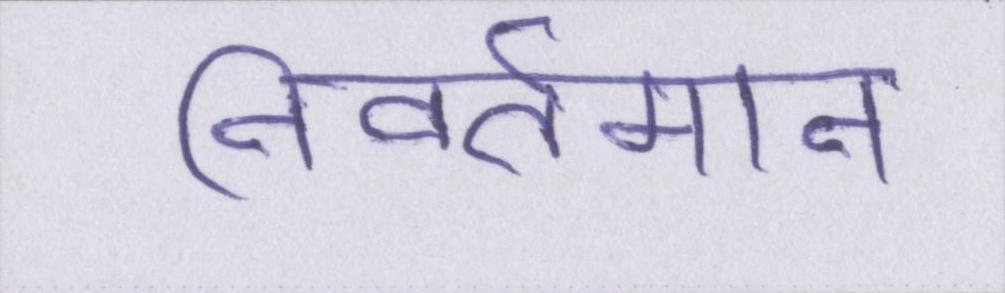 निवर्तमान